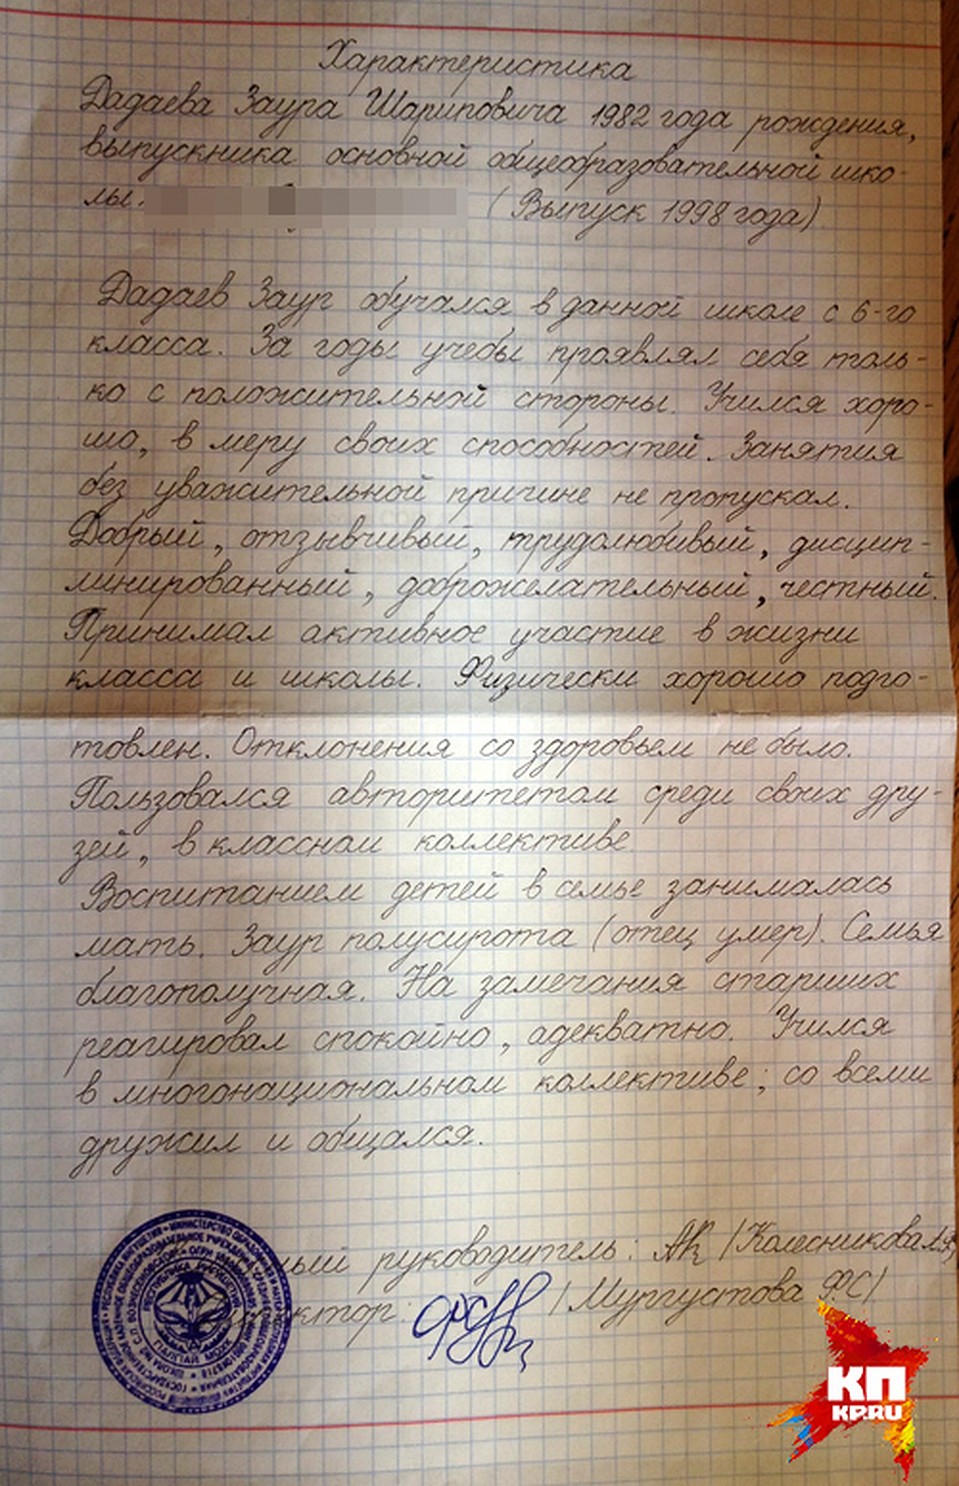 Характеристика
Дадаева Заура Шариповича 1982 года рождения,
выпускника основной общеобразовательной шко-
лы. (Выпуск 1998 года)
Дадаев Заур обучался в данной школе с 6-го
класса. За годы учебы проявлял себя толь-
ко с положительной стороны. Учился хоро-
шо, в меру своих способностей. Занятия
без уважительной причине не пропускал.
Добрый, отзывчивый, трудолюбивый, дисцип-
линированный, доброжелательный, честный.
Принимал активное участие в жизни
класса и школы. Физически хорошо подго-
товлен. Отклонения со здоровьем не было.
Пользовался авторитетом среди своих дру-
зей, в классном коллективе.
Воспитанием детей в семье занималась
мать. Заур полусирота (отец умер). Семья
благополучная. На замечания старших
реагировал спокойно, адекватно. Учился
в многонациональном коллективе; со всеми
дружил и общался.
ный руководитель: /Колесникова
ктор: /Мургустова Ф.С/
КП
KP.RU